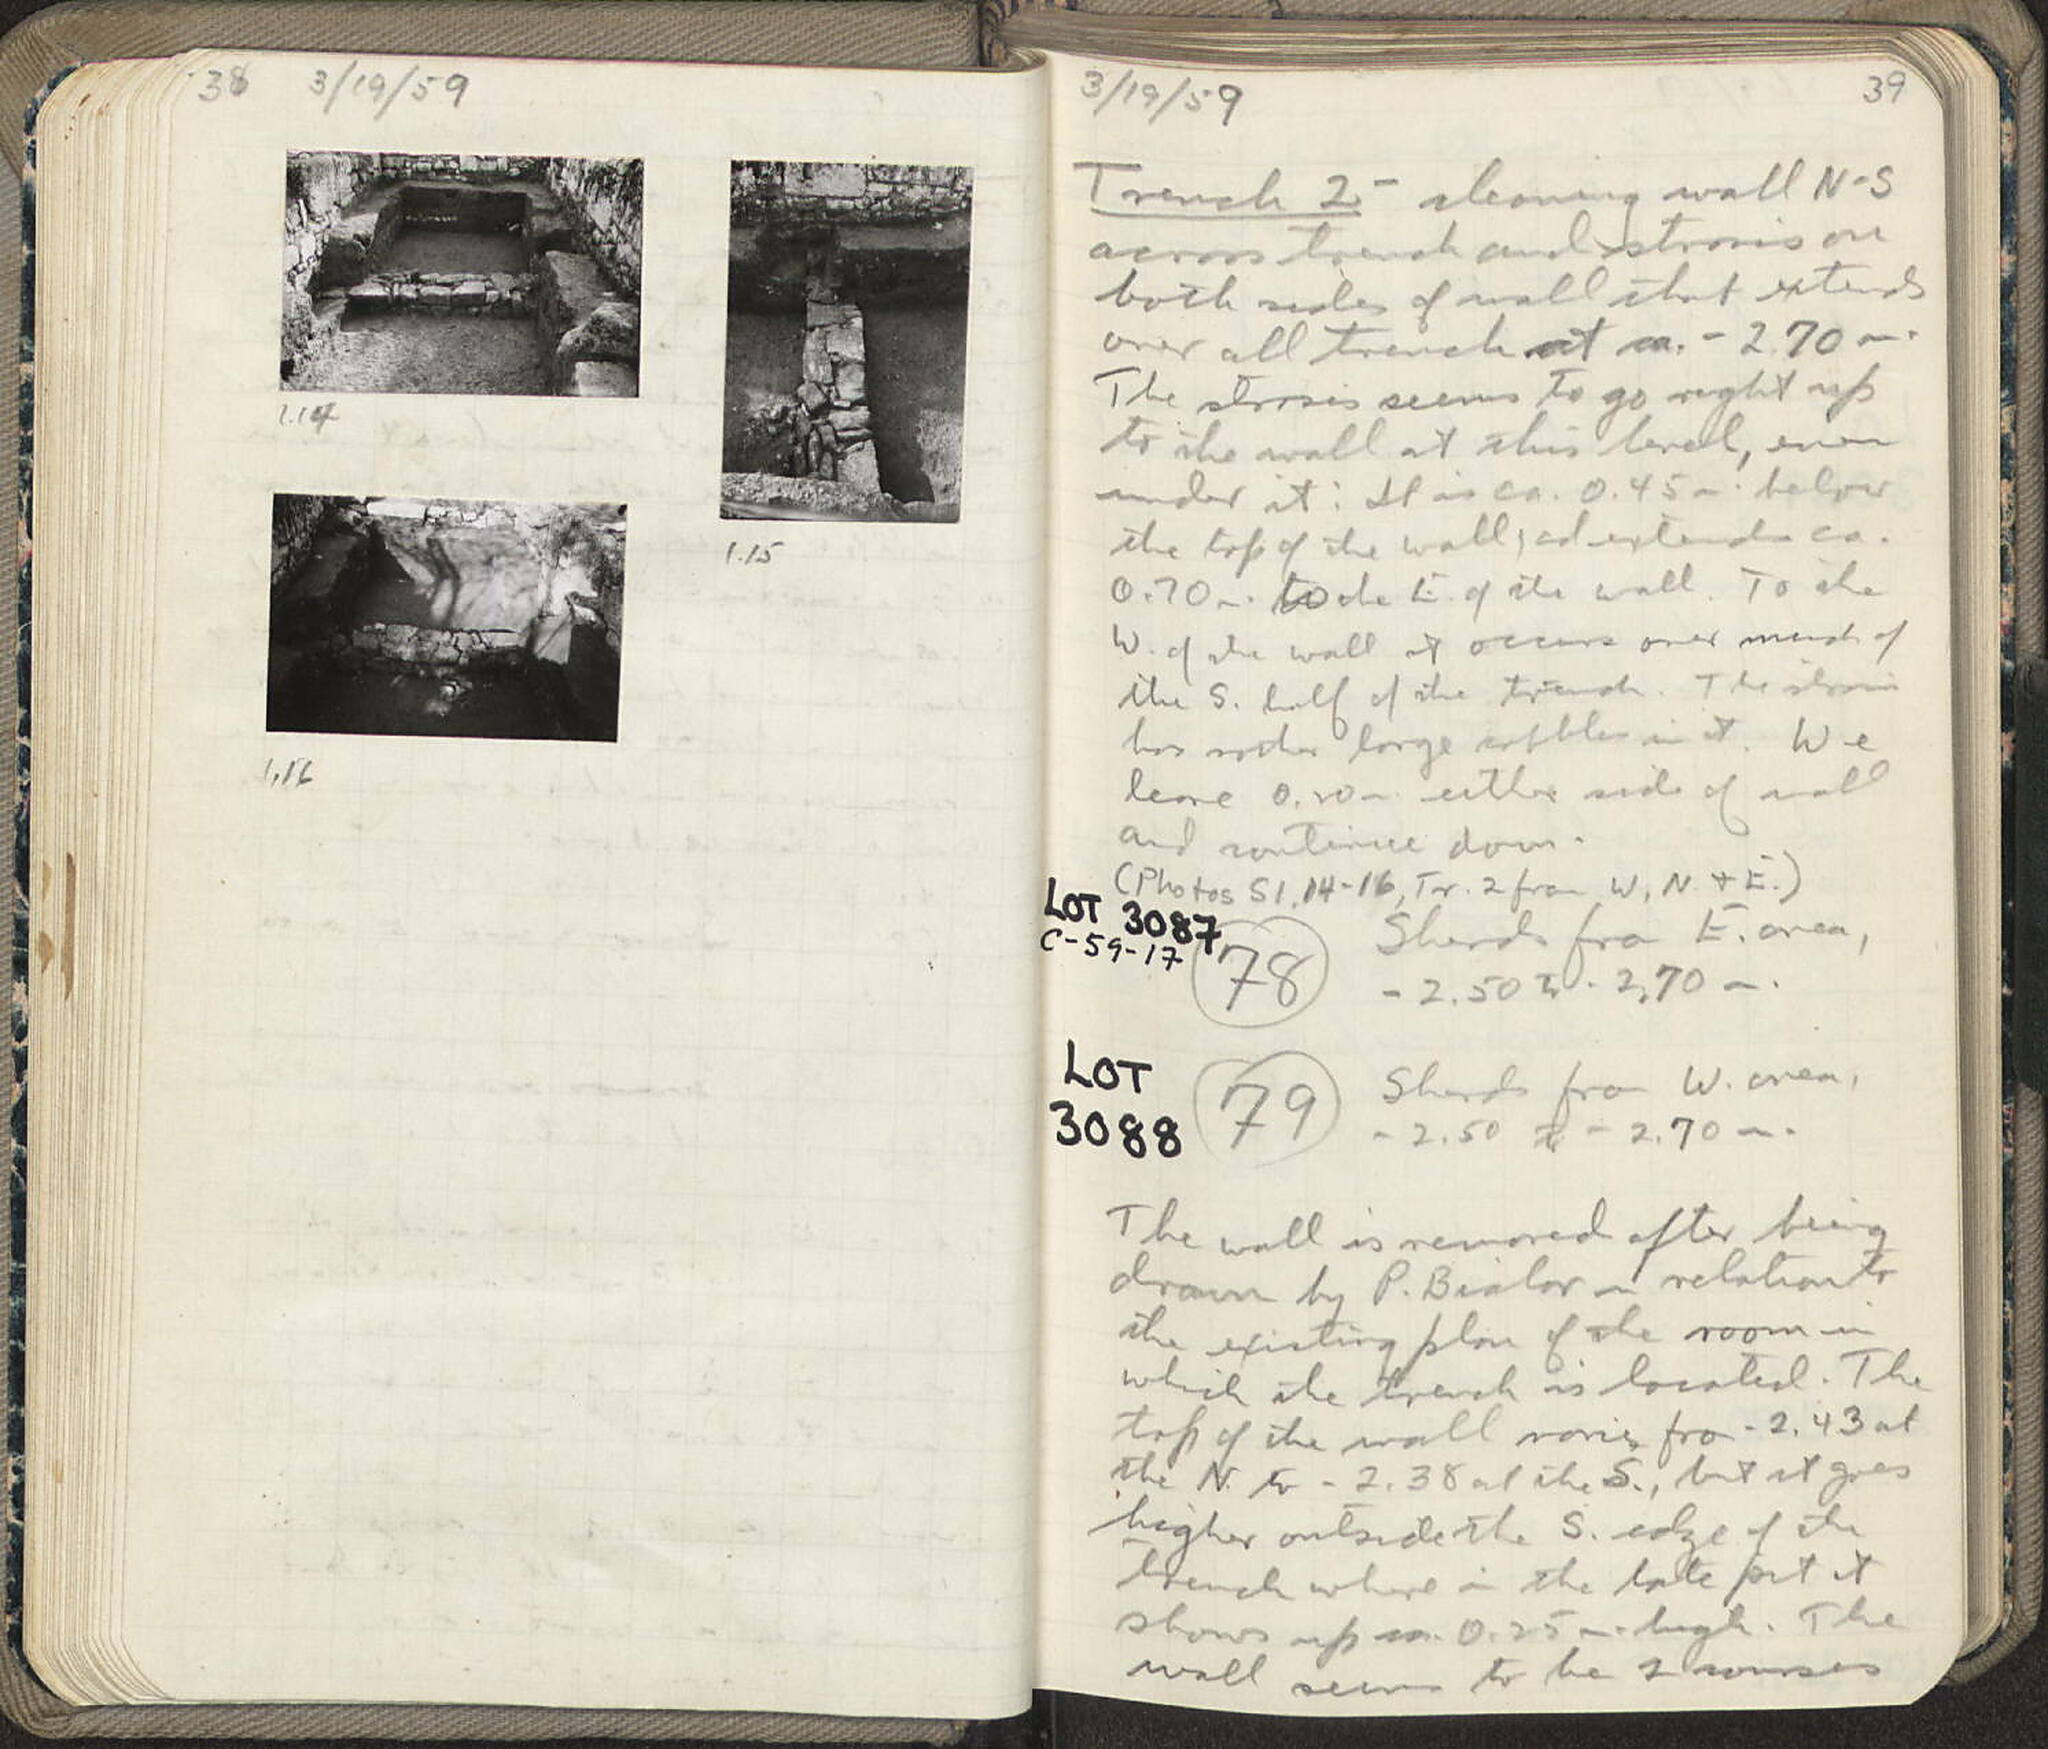 38 3/19/59
1.14
1.15
1.16
3/19/59 39
Trench 2 - cleaning wall N-S
across trench and strosis on
both sides of wall that extends
over all trench at ca. - 2.70 m.
The strosis seems to go right up
to the wall at this level, even
under it: It is ca. 0.45 m. below
the top of the wall, and extends ca.
0.70 m. to the E. of the wall. To the
W. of the wall it occurs over much of
the S. half of the trench. The strosis
has rather large cobbles in it. We
leave m. either side of wall
and continue down.
(Photos S1.14-16, Tr. 2 from W, N. + E.)
LOT 3087
C-59-17
78 Sherds from E. area,
- 2.50 to - 2.70 m.
LOT
3088
79 Sherds from W. area,
- 2.50 to - 2.70 m.
The wall is removed after being
drawn by P. Bialor in relation to
the existing plan of the room in
which the trench is located. The
top of the wall varies from - 2.43 at
the N. to - 2.38 at the S., but it goes
higher outside the S. edge of the
trench where in the late pit it
shows up ca. 0.25 m. high. The
wall seems to be 2 courses